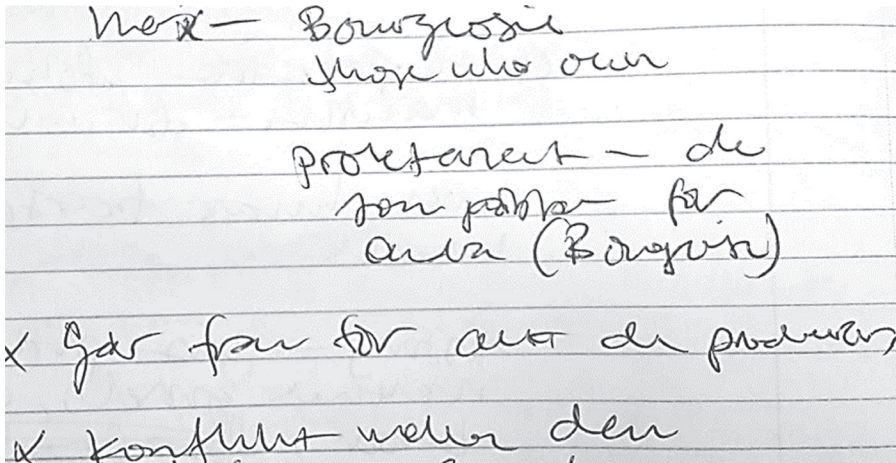 Marx – Bourgeosie
those who own
proletariat – de
som jobbar för
andra (Bourgeosie)
x Går fram för allt de produceras
x Konflikt mellan den